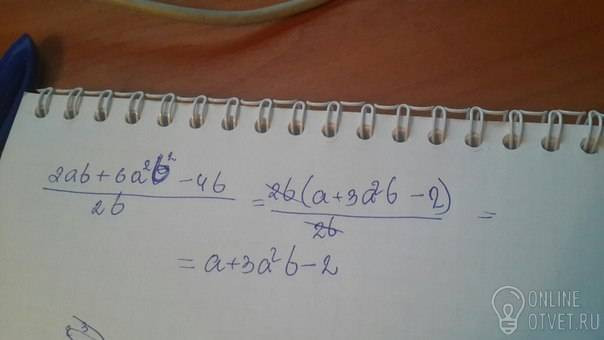 2ab + 6a²b² - 4b / 2b = 2b(a + 3a²b - 2) / 2b =
= a + 3a²b - 2
ONLINE
OTVET.RU